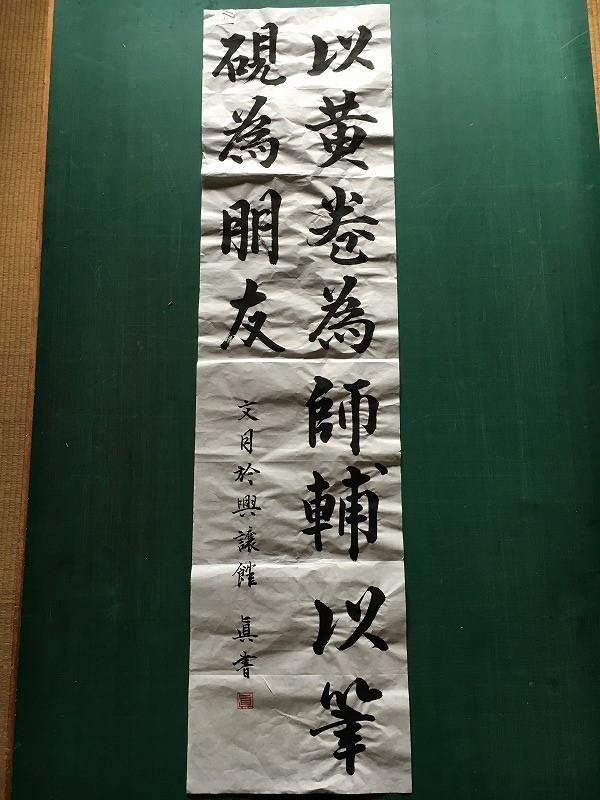 以黄巻為師輔以筆
硯為朋友
文月於興讓館 眞書